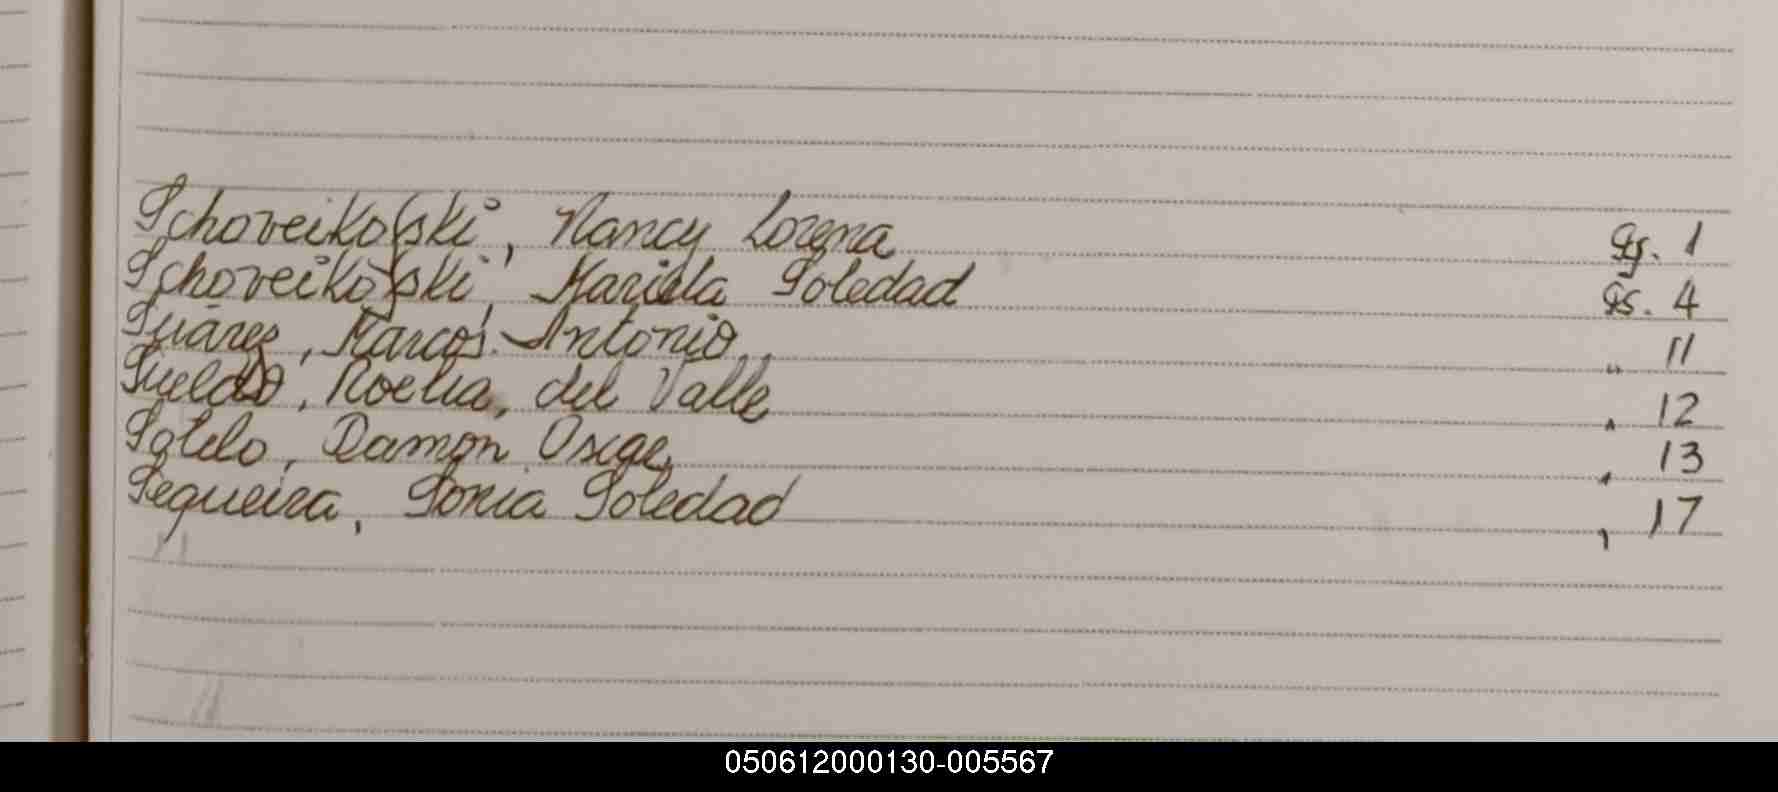 Schoveikofski, Nancy Lorena Fs. 1
Schoveikofski, Mariela Soledad Fs. 4
Suárez, Marcos Antonio " 11
Sueldo, Noelia, del Valle " 12
Sotelo, Ramon Oscar " 13
Sequeira, Sonia Soledad " 17
050612000130-005567